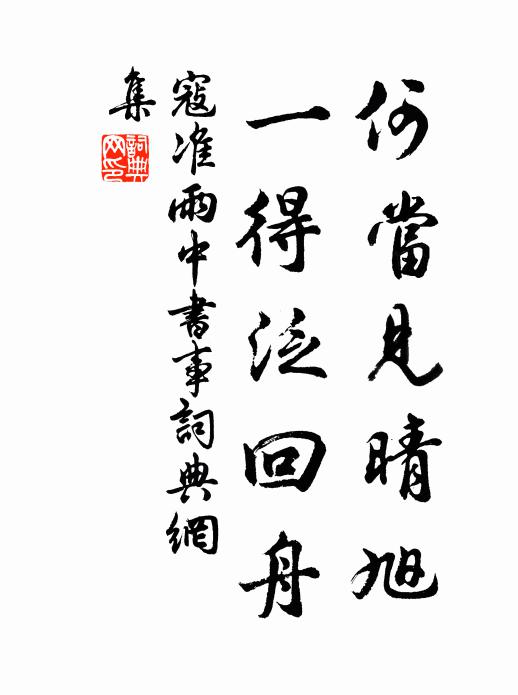 何當見晴旭
一得泛回舟
寇准雨中書事詞典網
集
詞典
网印